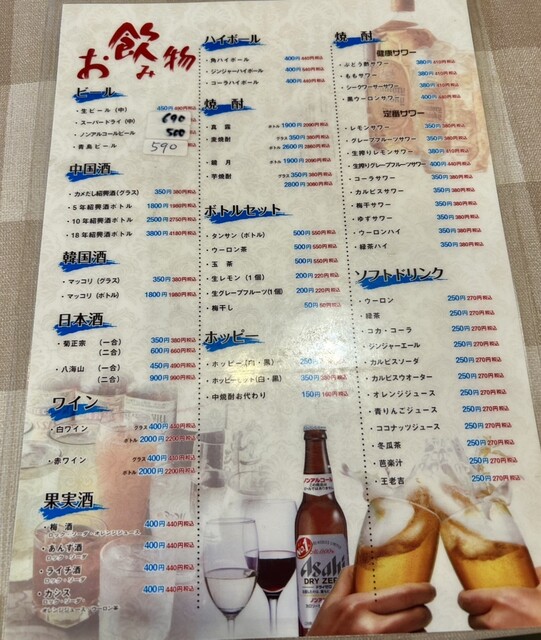 お飲み物
ビール
・生ビール（中） 450円
・スーパードライ（中） 690
・ノンアルコールビール 500
・青島ビール 590
中国酒
・カメだし紹興酒（グラス） 350円 380円税込
・5年紹興酒ボトル 1800円 1980円税込
・10年紹興酒ボトル 2500円 2750円税込
・18年紹興酒ボトル 3800円 4180円税込
韓国酒
・マッコリ（グラス） 350円 380円税込
・マッコリ（ボトル） 1800円 1980円税込
日本酒
・菊正宗 （一合） 350円 380円税込
（二合） 600円 660円税込
・八海山 （一合） 450円 490円税込
（二合） 900円 990円税込
ワイン
・白ワイン グラス 400円 440円税込
ボトル 2000円 2200円税込
・赤ワイン グラス 400円 440円税込
ボトル 2000円 2200円税込
果実酒
・梅酒 400円 440円税込
ロック・ソーダ・オレンジジュース
・あんず酒 400円 440円税込
ロック・ソーダ
・ライチ酒 400円 440円税込
ロック・ソーダ
・カシス 400円 440円税込
オレンジジュース・ウーロン茶
ハイボール
・角ハイボール 400円 440円税込
・ジンジャーハイボール 400円 440円税込
・コーラハイボール 400円 440円税込
焼酎
・真露 ボトル 1900円 2090円税込
・麦焼酎 グラス 350円 380円税込
ボトル 2600円 2860円税込
・鏡月 ボトル 1900円 2090円税込
・芋焼酎 グラス 350円 380円税込
2800円 3080円税込
ボトルセット
・タンサン（ボトル） 500円 550円税込
・ウーロン茶 500円 550円税込
・玉茶 500円 550円税込
・生レモン（1個） 200円 220円税込
・生グレープフルーツ(1個) 200円 220円税込
・梅干し 50円
ホッピー
・ホッピー(白・黒) 250円
・ホッピーセット(白・黒) 350円 380円税込
・中焼酎お代わり 150円 160円税込
焼酎
健康サワー
・ぶどう酢サワー 380円 410円税込
・ももサワー 380円 410円税込
・シークワーサーサワー 380円 410円税込
・黒ウーロンサワー 380円
定番サワー
・レモンサワー 350円 380円税込
・グレープフルーツサワー 350円 380円税込
・生搾りレモンサワー 380円 410円税込
・生搾りグレープフルーツサワー 400円 440円税込
・コーラサワー 350円 380円税込
・カルピスサワー 350円 380円税込
・梅干サワー 350円 380円税込
・ゆずサワー 350円 380円税込
・ウーロンハイ 350円 380円税込
・緑茶ハイ 350円 380円税込
ソフトドリンク
・ウーロン 250円 270円税込
・緑茶 250円 270円税込
・コカ・コーラ 250円 270円税込
・ジンジャーエール 250円 270円税込
・カルピスソーダ 250円 270円税込
・カルピスウオーター 250円 270円税込
・オレンジジュース 250円 270円税込
・青りんごジュース 250円 270円税込
・ココナッツジュース 250円 270円税込
・冬瓜茶 250円 270円税込
・芭楽汁 250円 270円税込
・王老吉 250円 270円税込
ノンアルコール
Asahi
DRY ZERO